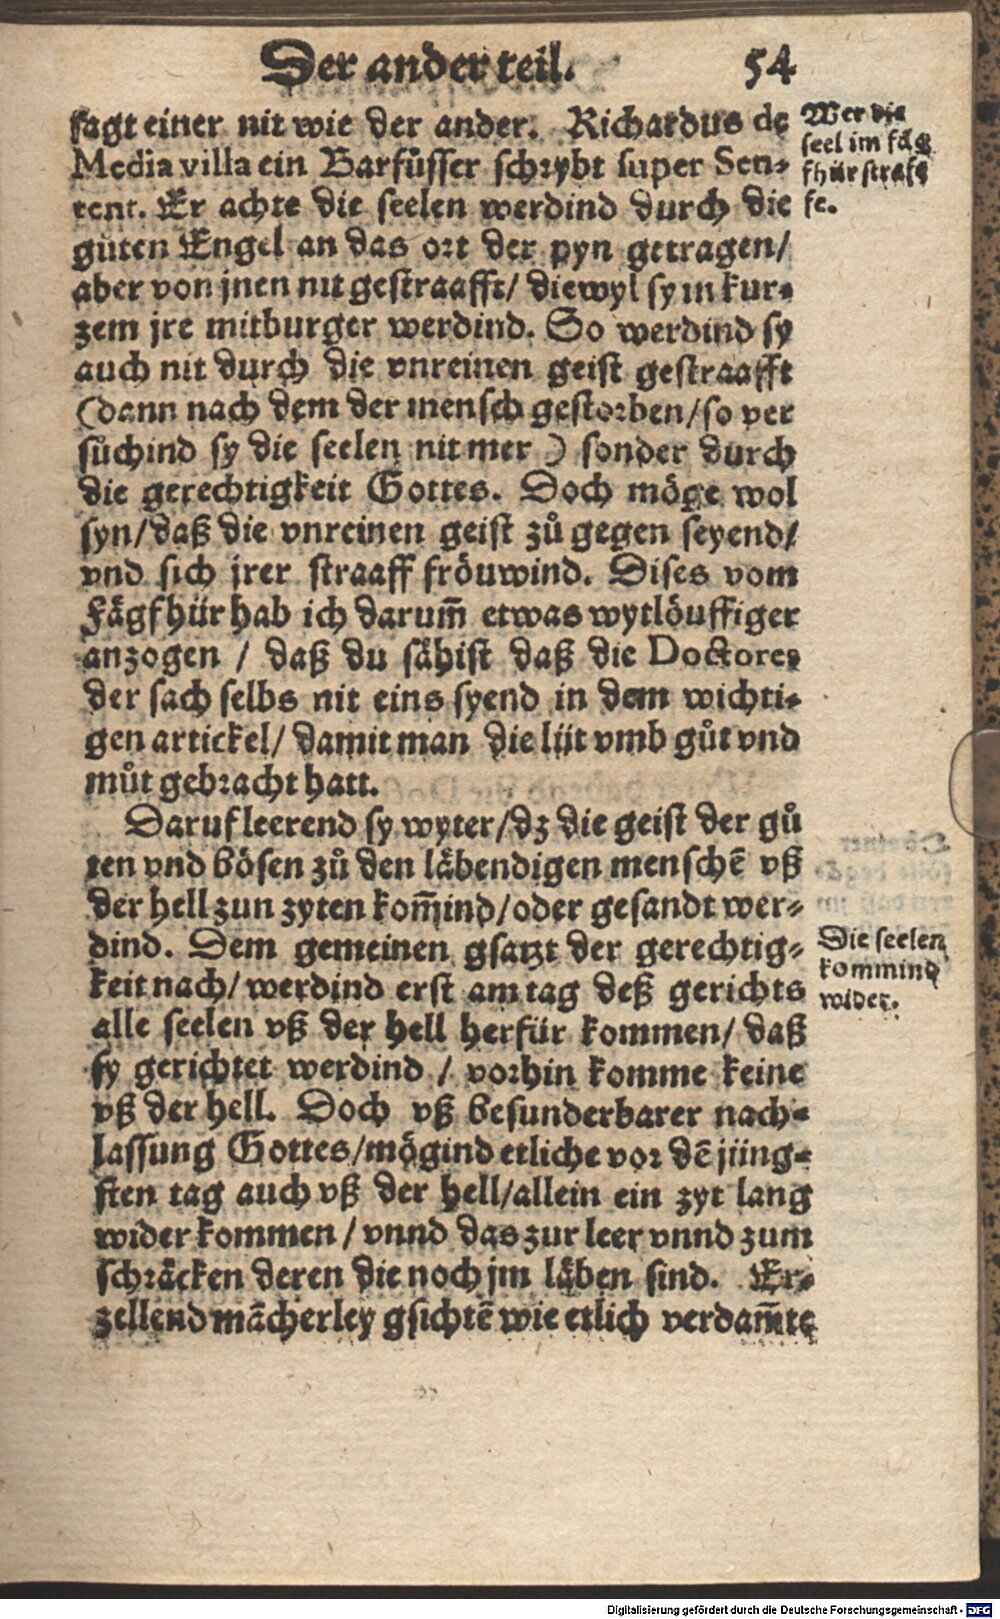 Der ander teil. 54
sagt einer nit wie der ander. Richardus de
Media villa ein Barfůsser schrybt super Sen-
tent. Er achte die seelen werdind durch die
gůten Engel an das ort der pyn getragen/
aber von jnen nit gestraafft/ diewyl sy in kur-
zem jre mitburger werdind. So werdind sy
auch nit durch die vnreinen geist gestraafft
(dann nach dem der mensch gestorben/so ver
sůchind sy die seelen nit mer) sonder durch
die gerechtigkeit Gottes. Doch möge wol
syn/daß die vnreinen geist zů gegen seyend/
vnd sich jrer straaff fröuwind. Dises vom
Fägfhür hab ich darum̄ etwas wytlöuffiger
anzogen / daß du sähist daß die Doctores
der sach selbs nit eins syend in dem wichti-
gen artickel/ damit man die lüt vmb gůt vnd
můt gebracht hatt.
Daruf leerend sy wyter/dz die geist der gů
ten vnd bösen zů den läbendigen menschē vß
der hell zun zyten kom̄ind/oder gesandt wer-
dind. Dem gemeinen gsatzt der gerechtig-
keit nach/ werdind erst am tag deß gerichts
alle seelen vß der hell herfür kommen/ daß
sy gerichtet werdind / vorhin komme keine
vß der hell. Doch vß besunderbarer nach-
lassung Gottes/mögind etliche vor dē jüng-
sten tag auch vß der hell/allein ein zyt lang
wider kommen / vnnd das zur leer vnnd zum
schräcken deren die noch jm läben sind. Er-
zellend mācherley gsichtē wie etlich verdam̄te
Wer die
seel im fäg
fhür straf
fe.
Die seelen
kommind
wider.
Digitalisierung gefördert durch die Deutsche Forschungsgemeinschaft - DFG